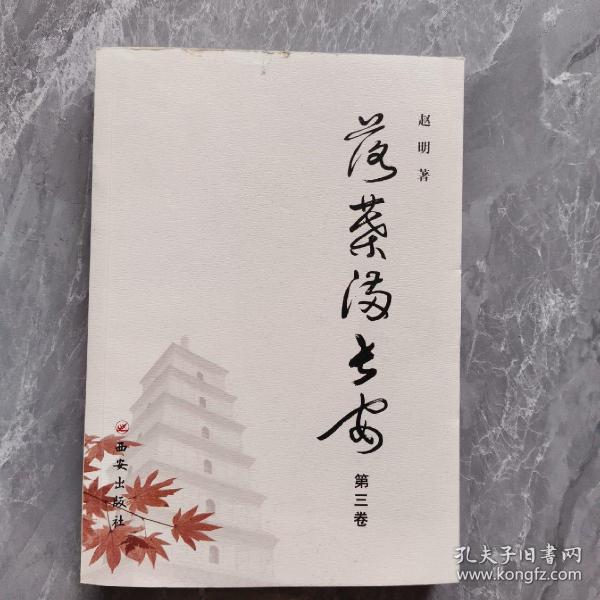 赵明著
落葉滿长安
第三卷
西安出版社
孔夫子旧书网
www.kongfz.com